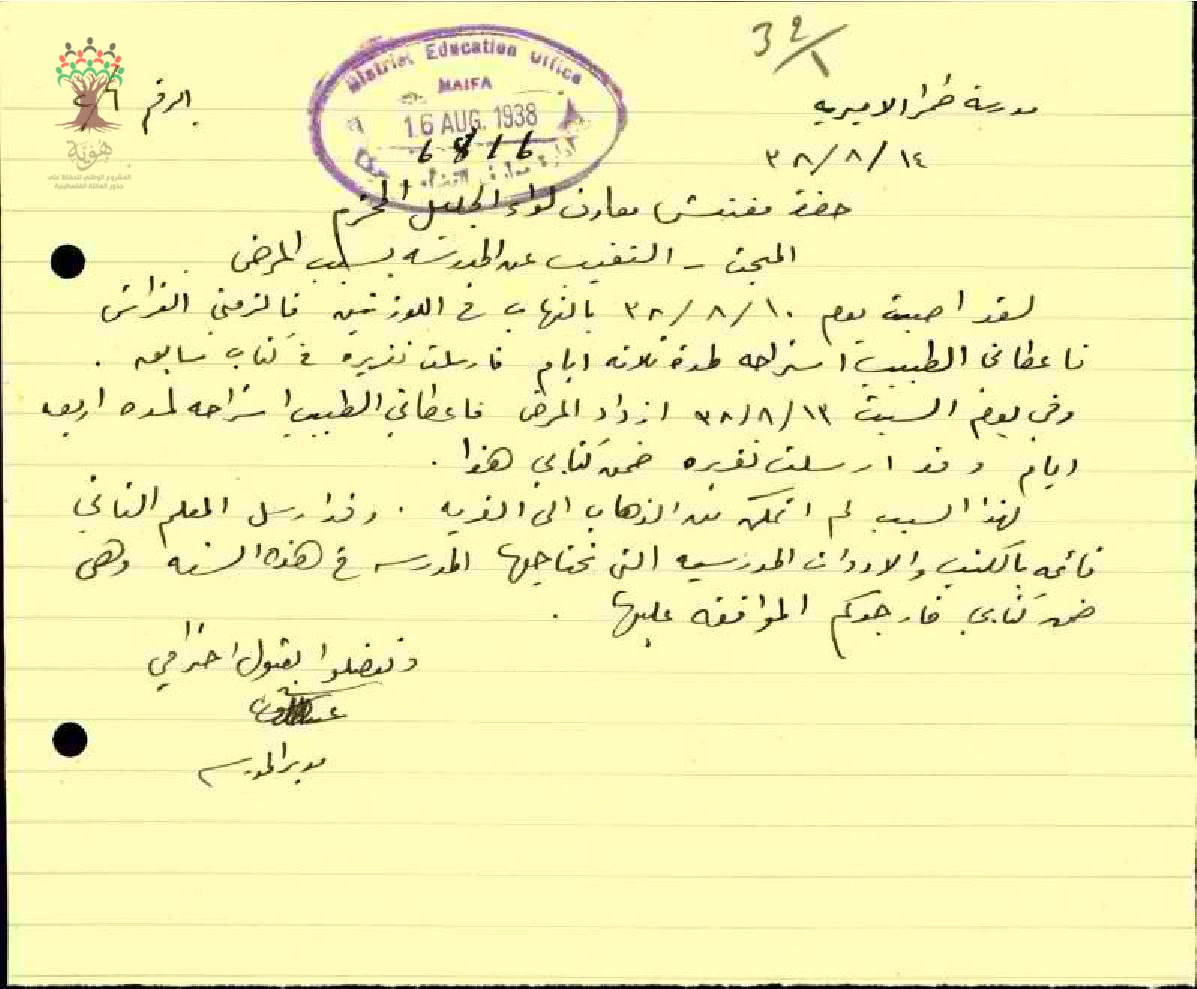 32/1
District Education Office
HAIFA
16 AUG. 1938
6816
هوية
المشروع الوطني للحفاظ على
جذور العائلة الفلسطينية
مدرسة طمرا الاميريه
الرقم ٤/٦
٣٨/٨/١٤
حضرة مفتش معارف لواء الجليل المحترم
المبحث - التغيب عن المدرسه بسبب المرض
لقد اصبت يوم ٣٨/٨/١٠ بالتهاب في اللوزتين فالزمني الفراش
فاعطاني الطبيب استراحه لمدة ثلاثه ايام فارسلت تقريره في كتاب سابق .
وفي يوم السبت ٣٨/٨/١٣ ازداد المرض فاعطاني الطبيب استراحه لمده اربعه
ايام وقد ارسلت تقريره ضمن كتابي هذا .
لهذا السبب لم اتمكن من الذهاب الى القريه . وقد ارسل المعلم الثاني
قائمه بالكتب والادوات المدرسيه التي تحتاجها المدرسه في هذه السنه وهي
ضمن كتابي فارجوكم الموافقه عليها .
وتفضلوا بقبول احترامي
مدير المدرسه